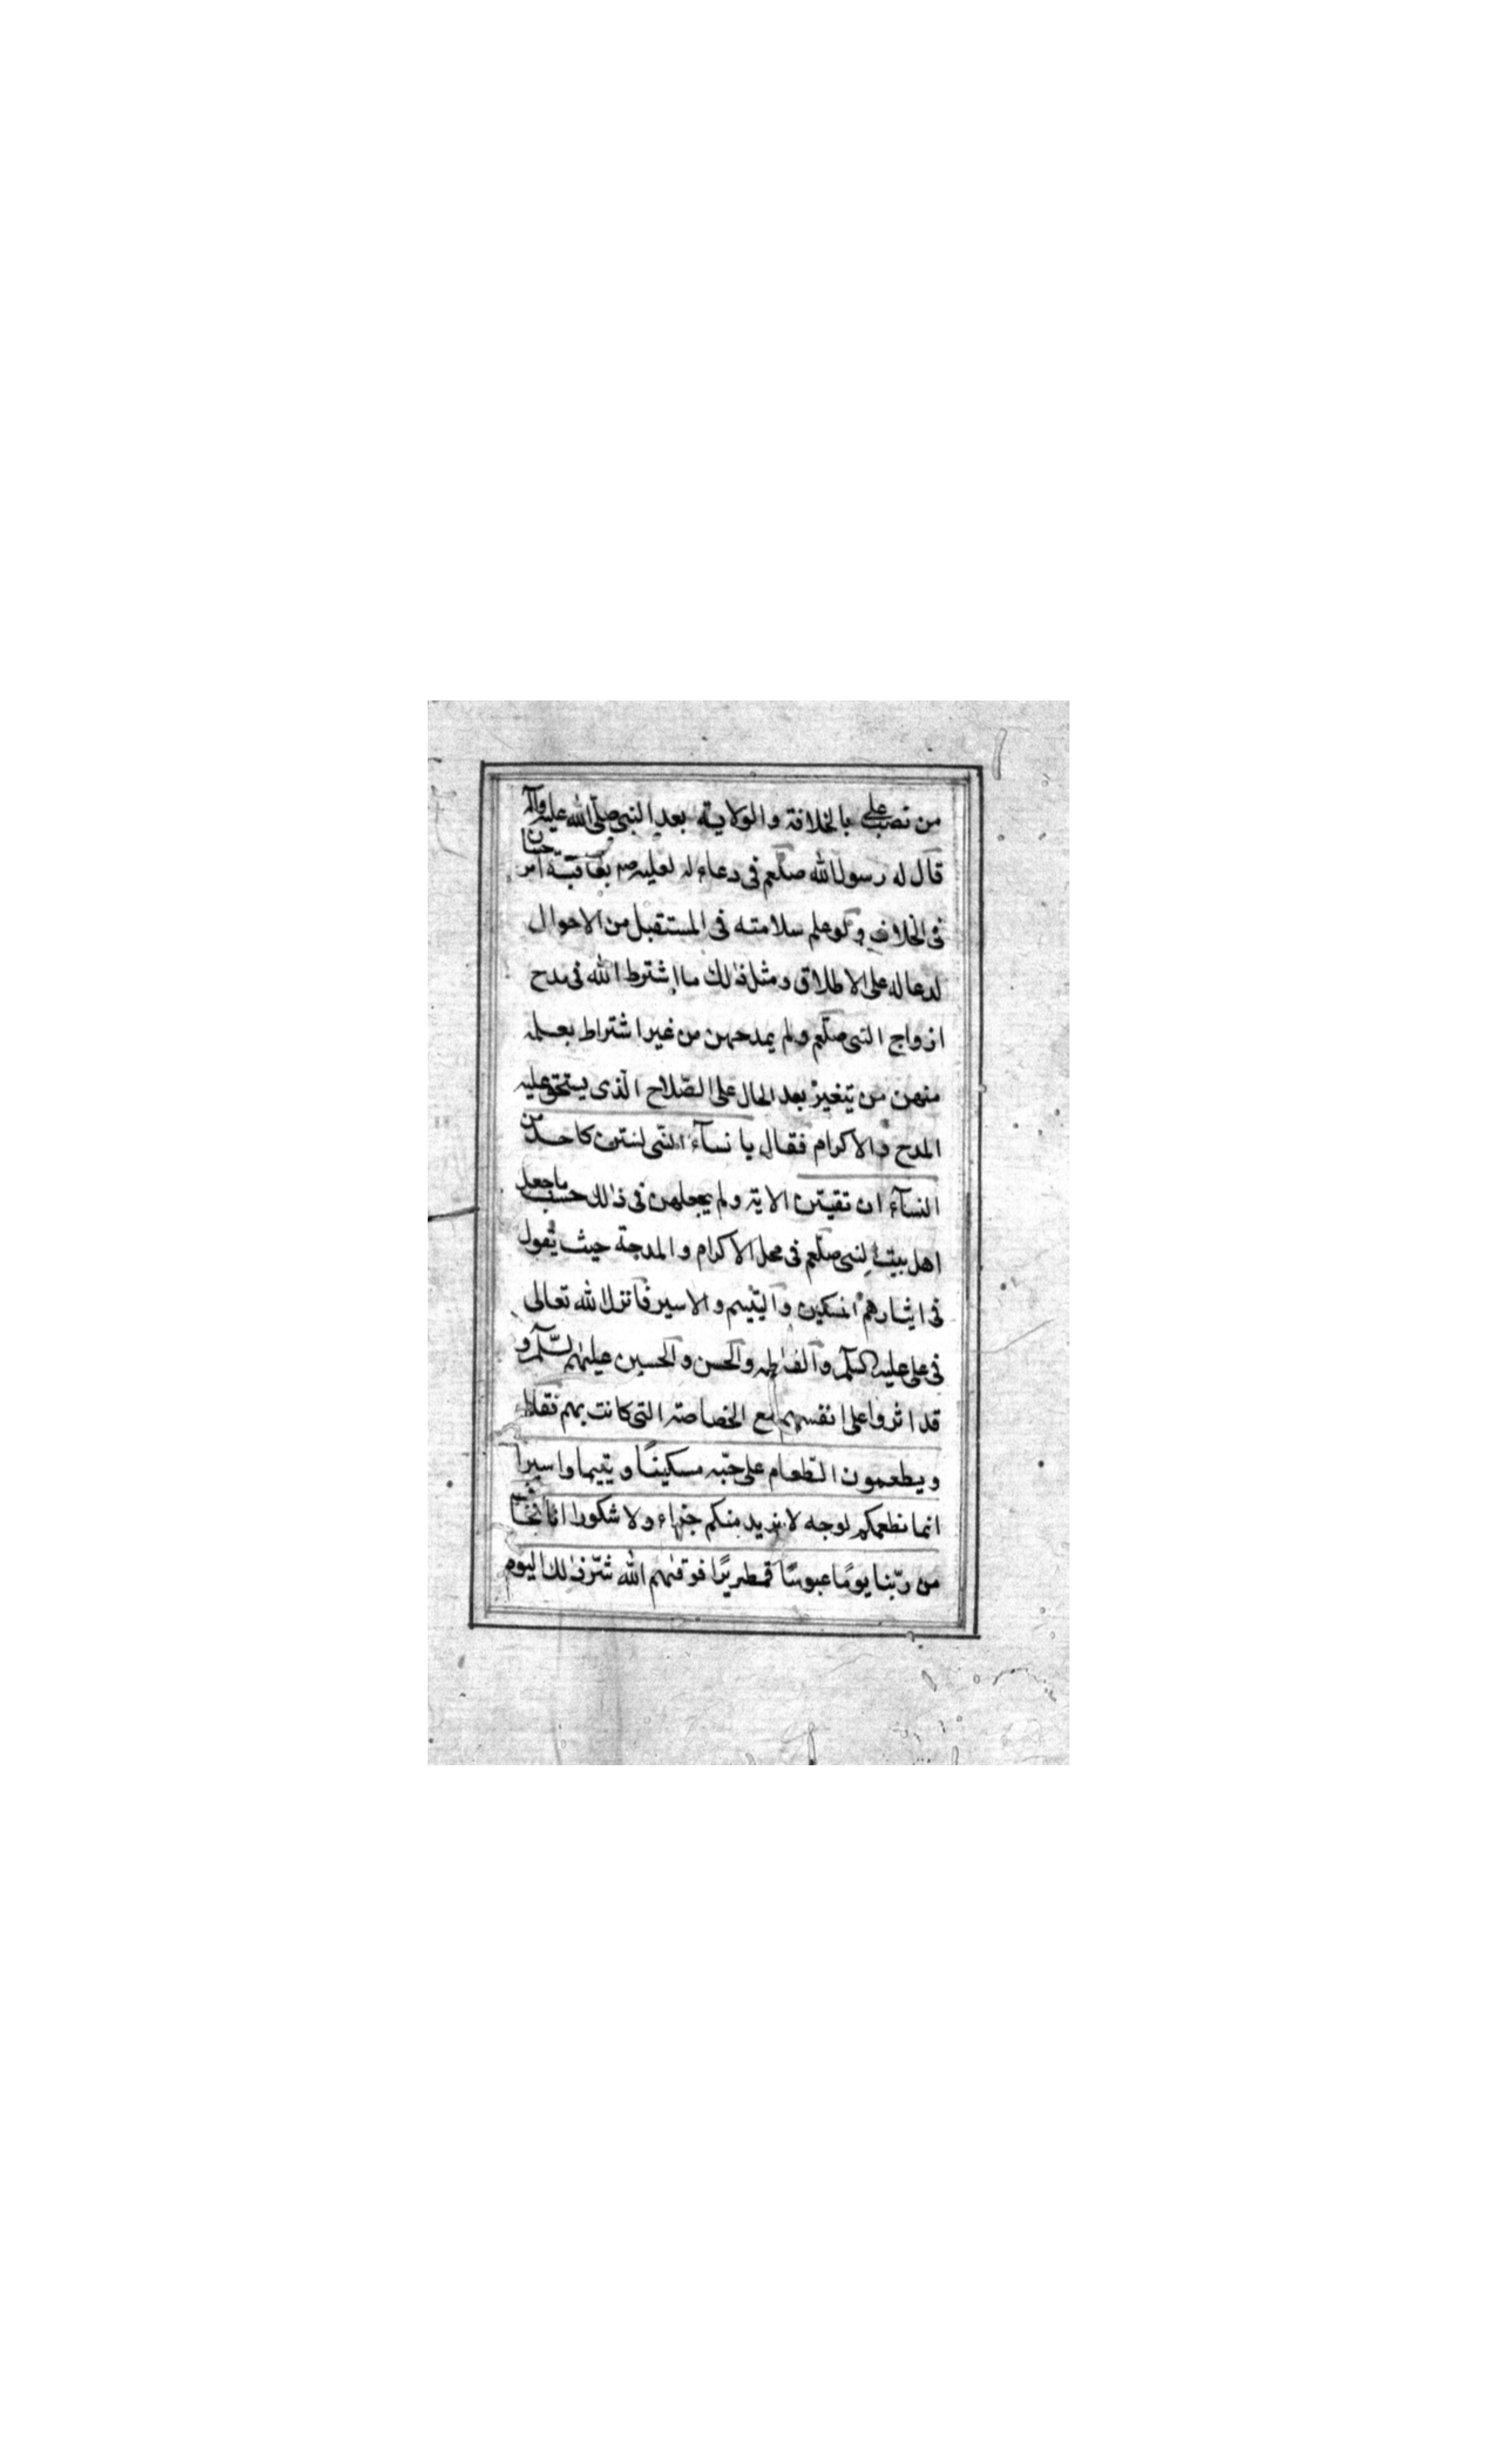 من نصب علي بالخلافة والولاية بعد النبي صلى الله عليه وآله
قال له رسول الله صلعم فى دعاء له لعلمه ص بعاقبة امر حسان
فى الخلاف ولو علم سلامته فى المستقبل من الاحوال
لدعا له على الاطلاق ومثل ذلك ما اشترط الله فى مدح
ازواج النبى صلعم ولم يمدحهن من غير اشتراط بعلمه
منهن من يتغير بعد الحال على الصّلاح الّذى يستحق عليه
المدح والاكرام فقال يا نسآء النّبى لستن كاحد من
النسآء ان تقيتن الاية ولم يجعلهن فى ذلك حسب ما جعل
اهل بيت النبى صلعم فى محل الاكرام والمدحة حيث يقول
فى ايثارهم المسكين واليتيم والاسير فانزل الله تعالى
فى على عليه السلم والفاطمه والحسن والحسين عليهم السّلم و
قد اثروا على انفسهم مع الخصاصة التى كانت بهم فقال
ويطعمون الطّعام على حبّه مسكينًا ويتيما واسيرا
انما نطعمكم لوجه لا نريد منكم جزاء ولا شكورا انا نخاف
من ربّنا يومًا عبوسًا قمطريرًا فوقهم الله شرّ ذلك اليوم